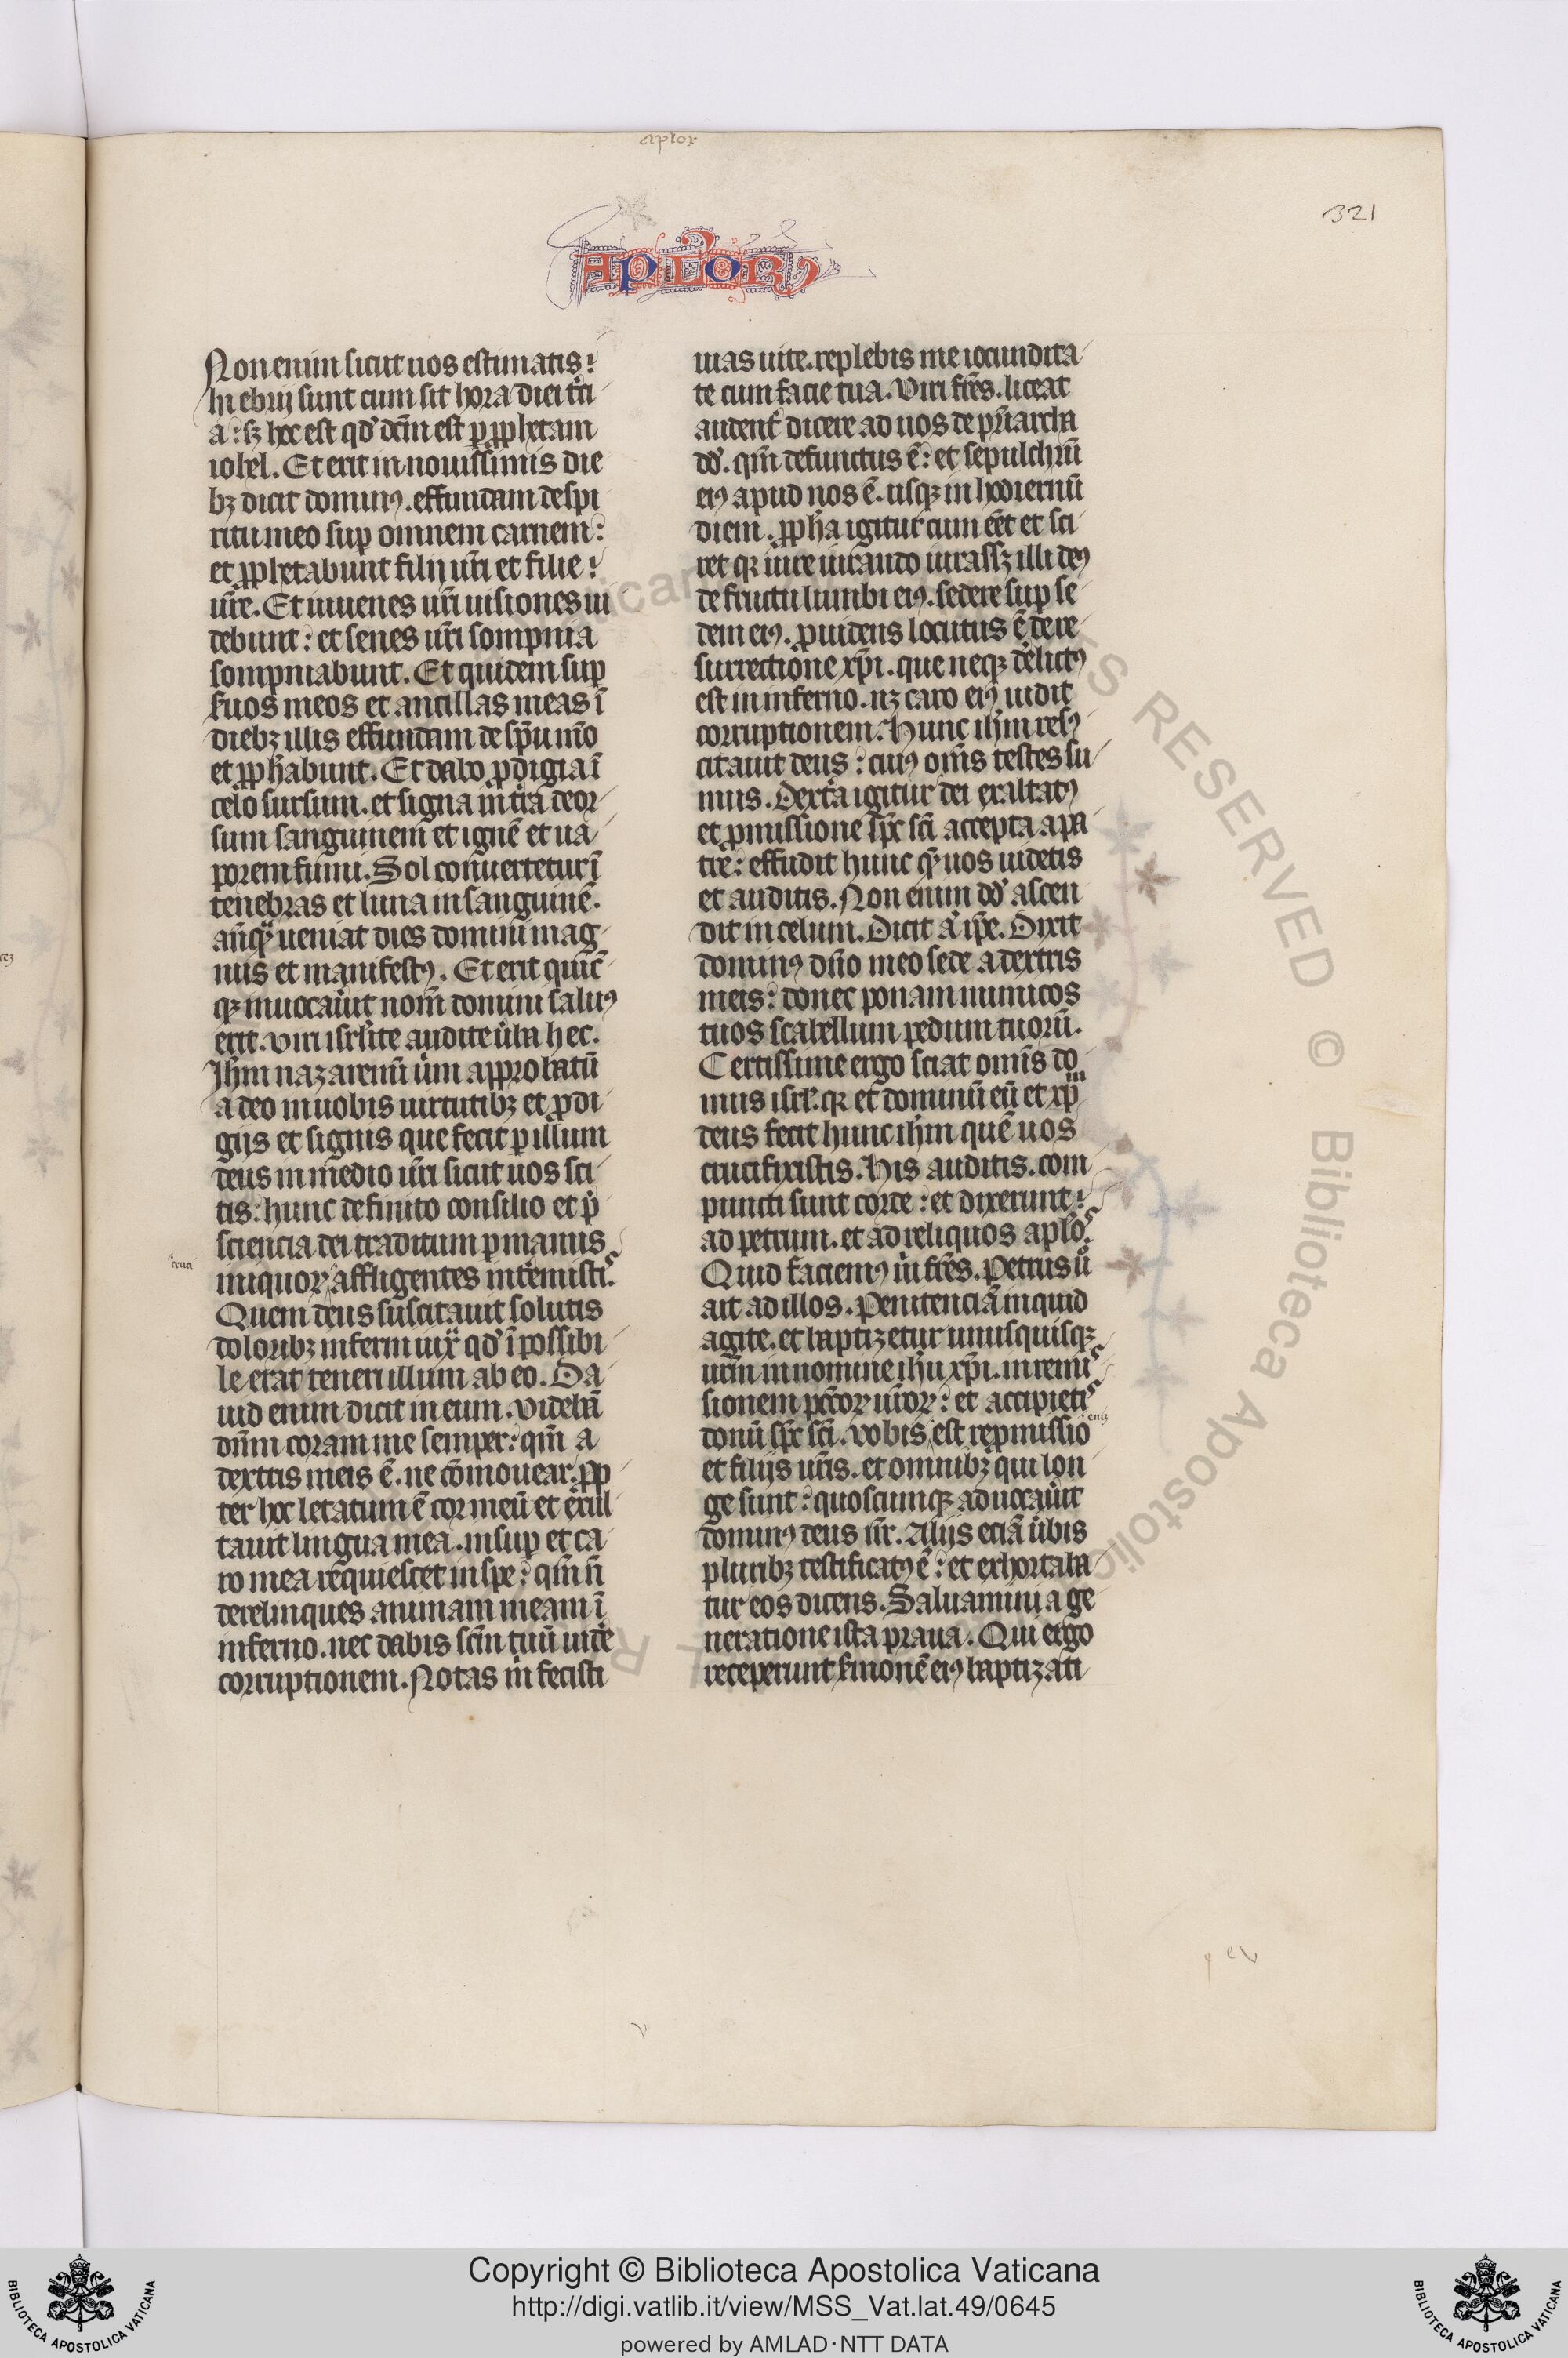 aplor
321
APLORꝰ
Non enim sicut uos estimatis:
hi ebrij sunt cum sit hora diei t̾ci
a: sꝫ hoc est qd̾ dc̄m est ꝑ ꝓphetam
iohel. Et erit in nouissimis die
bꝫ dicit dominꝰ. effundam de spi
ritu meo sup omnem carnem:
et ꝓphetabunt filij ur̄i et filie:
ur̄e. Et iuuenes ur̄i uisiones ui
debunt: et senes ur̄i sompnia
sompniabunt. Et quidem sup
ẜuos meos et ancillas meas ī
diebꝫ illis effundam de spū mō
et ꝓph̄abunt. Et dabo ꝓdigia ī
celo sursum. et signa in tr̄a deor
sum sanguinem et ignē et ua
porem fumi. Sol conuertetur ī
tenebras et luna in sanguinē.
an̄qͣ ueniat dies domini mag
nus et manifestꝰ. Et erit quic̄
qꝫ inuocau̾it nom̄ domini saluꝰ
erit. Viri isrl̾ite audite u̾ba hec.
Ih̄m nazarenū ui̾m approbatū
a deo in uobis uirtutibꝫ et ꝓdi
gijs et signis que fecit ꝑ illum
deus in medio ur̄i sicut uos sci
tis: hunc definito consilio et p̾
sciencia dei traditum ꝑ manus
cruci
iniquoꝝ affligentes int̾emistis.
Quem deus suscitauit solutis
doloribꝫ inferni iuxͣ qd̾ ī possibi
le erat teneri illum ab eo. Da
uid enim dicit in eum. Videbā
dn̄m coram me semper: qm̄ a
dextris meis ē. ne cōmouear. ꝓp
ter hoc letatum ē cor meū et exul
tauit lingua mea. insup et ca
ro mea req̄uiescet in spe: qm̄ n̄
derelinques animam meam ī
inferno. nec dabis scm̄ tuū uide̾
corruptionem. Notas m̾ fecisti
uias uite. replebis me iocundita
te cum facie tua. Viri fr̄es. liceat
audent̾ dicere ad uos de pr̄iarcha
dd̾. qm̄ defunctus ē: et sepulchrū
eiꝰ apud nos ē. usqꝫ in hodiernū
diem. ꝓph̄a igitur cum eēt et sci
ret qꝛ iure iurando iurassꝫ illi deꝰ
de fructu lumbi eiꝰ. sedere sup se
dem eiꝰ. ꝓuidens locutus ē de re
surrectione xp̄i. que neqꝫ delictꝰ
est in inferno. nꝫ caro eiꝰ uidit
corruptionem. Hunc ih̄m resꝰ
citauit deus: cuiꝰ om̄s testes su
mus. Dext̾a igitur dei exaltatꝰ
et ꝓmissione spc̄ sc̄i accepta a pa
tre: effudit hunc qͤ uos uidetis
et auditis. Non enim dd̾ ascen
dit in celum. Dicit a̾ ip̄e. Dixit
dominꝰ dn̄o meo sede a dextris
meis: donec ponam inimicos
tuos scabellum pedum tuorū.
Certissime ergo sciat omīs do
mus isrl̾. qꝛ et dominū eū et xp̄m
deus fecit hunc ih̄m quē uos
crucifixistis. His auditis. com
puncti sunt corde: et dixerunt:
ad petrum. et ad reliquos aplōs.
Quid faciemꝰ ui̾ fr̄es. Petrus u̾o
ait ad illos. Penitenciā inquid
agite. et baptizetur unusquisqꝫ
ur̄m in nomine ih̄u xp̄i. in remis
sionem pc̄c̄oꝝ ur̄oꝝ: et accipietis
donū spc̄ sc̄i. vobis est reꝓmissio
enī
et filijs ur̄is. et omnibꝫ qui lon
ge sunt: quoscumqꝫ aduocau̾it
dominꝰ deus nr̄. Alijs eciā u̾bis
pluribꝫ testificatꝰ ē: et exhortaba
tur eos dicens. Saluamini a ge
neratione ista praua. Qui ergo
receperunt ẜmonē eiꝰ baptizati
Copyright © Biblioteca Apostolica Vaticana
http://digi.vatlib.it/view/MSS_Vat.lat.49/0645
powered by AMLAD·NTT DATA
BIBLIOTECA APOSTOLICA VATICANA
BIBLIOTECA APOSTOLICA VATICANA